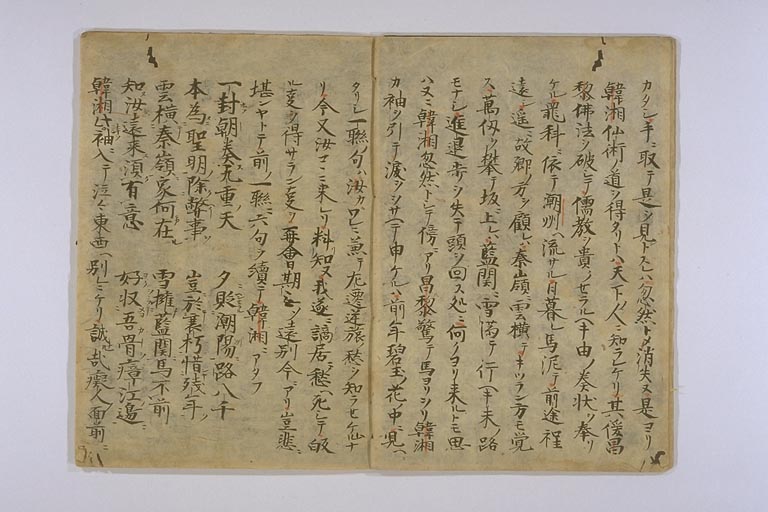 カタン手ニ取テ是ヲ見トスレハ忽然トメ消失ヌ是ヨリ
韓湘仙術ノ道ヲ得タリトハ天下ノ人ニ知ランケリ其後昌
黎佛法ヲ破シテ儒教ヲ貴ノセラルヘキ由ノ奏状ヲ奉リ
ケル罷科ニ依テ潮州ヘ流サル日暮レ馬泥テ前途程
遠シ遥ニ故郷ノ方ヲ顧レハ秦嶺ニ雲横テキツラン方モ覚
ス萬仭ヲ攀テ坂ニ上レハ藍関ニ雪満テ行ヘキ末ノ路
モナシ進退歩ヲ失テ頭ヲ回ス処ニ何ノヨリ来ルトモ思
ハヌニ韓湘忽然トシテ傍ニアリ昌黎驚テ馬ヨリヲリ韓湘
カ袖ヲ引テ涙ヲヲサヘテ申ケルハ前年碧玉ノ花ノ中ニ見ヘ
タリシ一聯ノ句ハ汝カワレニ兼テ左遷逆旅ノ愁ヲ知ラセケルナ
リ今又汝コヽニ来レリ料知ヌ我遂ニ謫居ニ愁ヘ死シテ皈
ル𠀋ヲ得サラン𠀋ヲ再會日期ヒトツ遠別今ニアリ豈悲ニ
堪ンヤトテ前ノ一聯ニ六句ヲ續テ韓湘ニアタフ
一封朝奏九重天 夕貶潮陽路八千
本為聖明除弊事 豈於衰朽惜残年
雲横秦嶺家何在 雪擁藍関馬不前
知汝遠来須有意 好収吾骨瘴江邉
韓湘此ヲ袖ニ入テ泣々東西ヘ別ニケリ誠哉痴人面前ニ